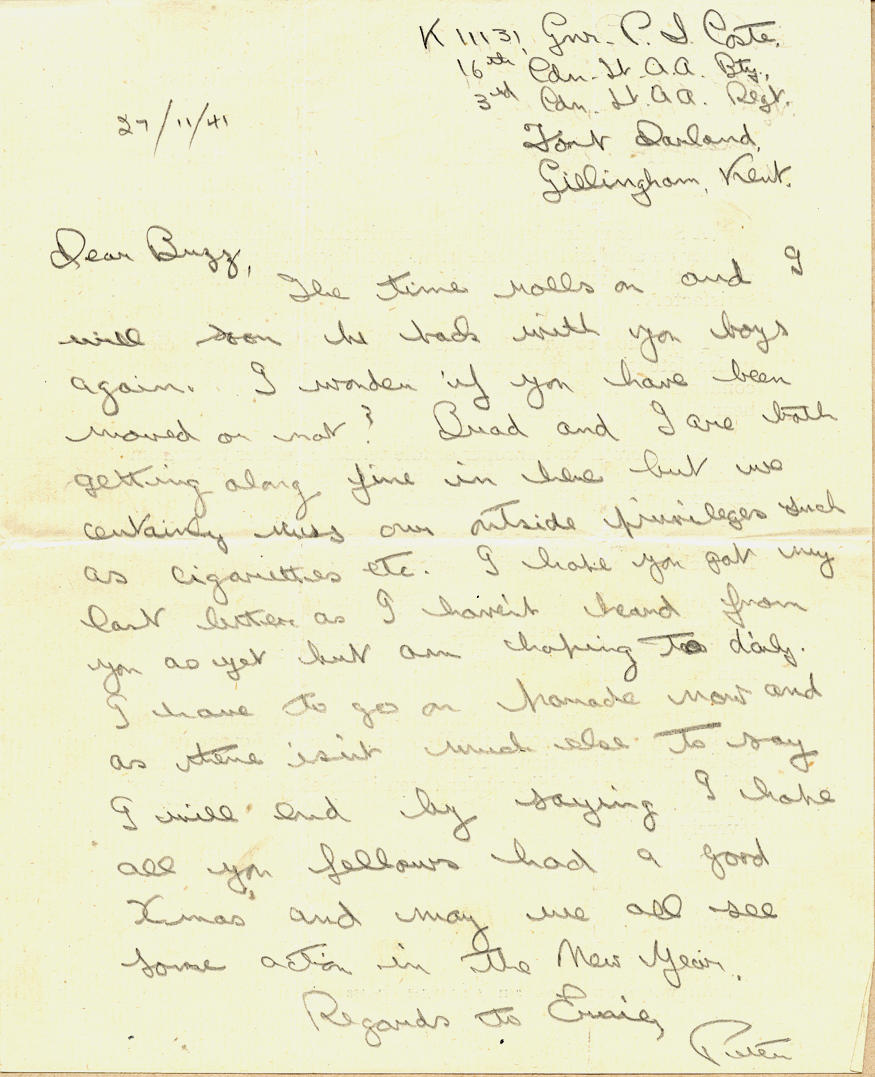 K 11131, Gnr. P. I. Coste.
16th Cdn. Lt. A.A. Bty.,
3rd Cdn. Lt. A.A. Regt.
27/11/41
Fort Darland,
Gillingham, Kent.
Dear Buzz,
The time rolls on and I
will soon be back with you boys
again. I wonder if you have been
moved or not? Quad and I are both
getting along fine in here but we
certainly miss our outside privileges such
as cigarettes etc. I hope you got my
last letter as I haven't heard from
you as yet but am hoping to daily.
I have to go on parade now and
as there isn't much else to say
I will end by saying I hope
all you fellows had a good
Xmas and may we all see
some action in the New Year.
Regards to Ernie,
Peter